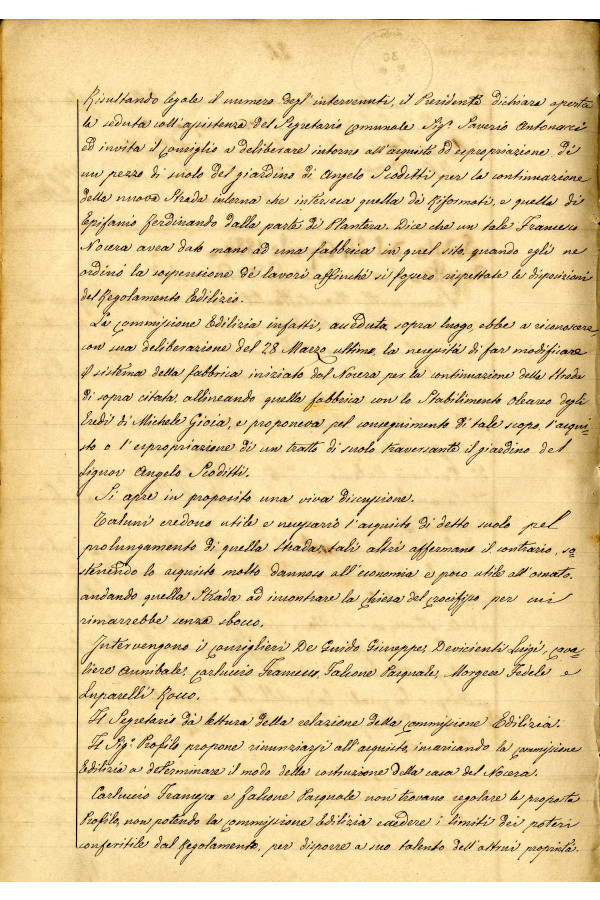 Risultando legale il numero degl'intervenuti, il Presidente dichiara aperta
la seduta coll'assistenza del Segretario comunale Sig.r Saverio Antonucci
ed invita il Consiglio a deliberare intorno all'acquisto od espropriazione di
un pezzo di suolo del giardino di Angelo Scoditti per la continuazione
della nuova Strada interna che interseca quella dè Riformati, e quella di
Epifanio Ferdinando dalla parte di Plantera. Dice che un tale Francesco
Nocera avea dato mano ad una fabbrica in quel sito, quando egli ne
ordinò la sospensione dè lavori affinchè si fossero rispettate le disposizioni
del Regolamento Edilizio.
La Commissione Edilizia infatti, acceduta sopra luogo, ebbe a riconoscere
con sua deliberazione del 28 Marzo ultimo, la necessità di far modificare
il sistema della fabbrica iniziato dal Nocera per la continuazione della strada
di sopra citata, allineando quella fabbrica con lo Stabilimento Oleareo degli
Eredi di Michele Gioia, e proponeva pel conseguimento di tale scopo, l'acqui-
sto o l'espropriazione di un tratto di suolo traversante il giardino del
Signor Angelo Scoditti.
Si apre in proposito una viva discussione.
Taluni credono utile e necessario l'acquisto di detto suolo pel
prolungamento di quella strada, tali altri affermano il contrario, so-
stenendo lo acquisto molto dannoso all'economia e poco utile all'ornato,
andando quella Strada ad incontrare la chiesa del Crocifisso per cui
rimarrebbe senza sbocco.
Intervengono i consiglieri De Guido Giuseppe, Devicienti Luigi, Cava-
liere Annibale, Carluccio Francesco, Falcone Pasquale, Morgese Fedele e
Luparelli Rocco.
Il Segretario dà lettura della relazione della Commissione Edilizia.
Il Sig.r Profilo propone rinunziarsi all'acquisto, incaricando la Commissione
Edilizia a determinare il modo della costruzione della casa del Nocera.
Carluccio Francesco e Falcone Pasquale non trovano regolare la proposta
Profilo, non potendo la Commissione Edilizia eccedere i limiti dei poteri
conferitile dal Regolamento, per disporre a suo talento dell'altrui proprietà.